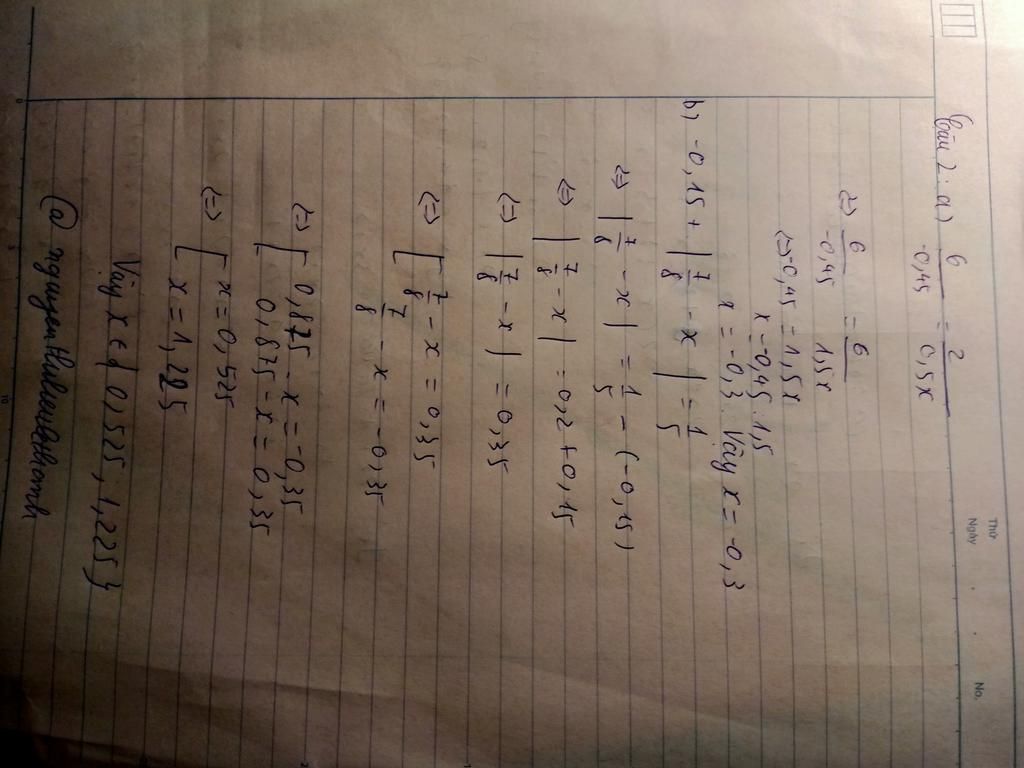 Thứ
Ngày No.
Bài 2. a) 6/-0,45 = 2/0,5x
<=> 6/-0,45 = 6/1,5x
<=> -0,45 = 1,5x
x = -0,45 : 1,5
x = -0,3. Vậy x = -0,3
b) -0,15 + |7/8 - x| = 1/5
<=> |7/8 - x| = 1/5 - (-0,15)
<=> |7/8 - x| = 0,2 + 0,15
<=> |7/8 - x| = 0,35
<=> [ 7/8 - x = 0,35
7/8 - x = -0,35
<=> [ 0,875 - x = -0,35
0,875 - x = 0,35
<=> [ x = 0,525
x = 1,225
Vậy x ∈ { 0,525, 1,225 }